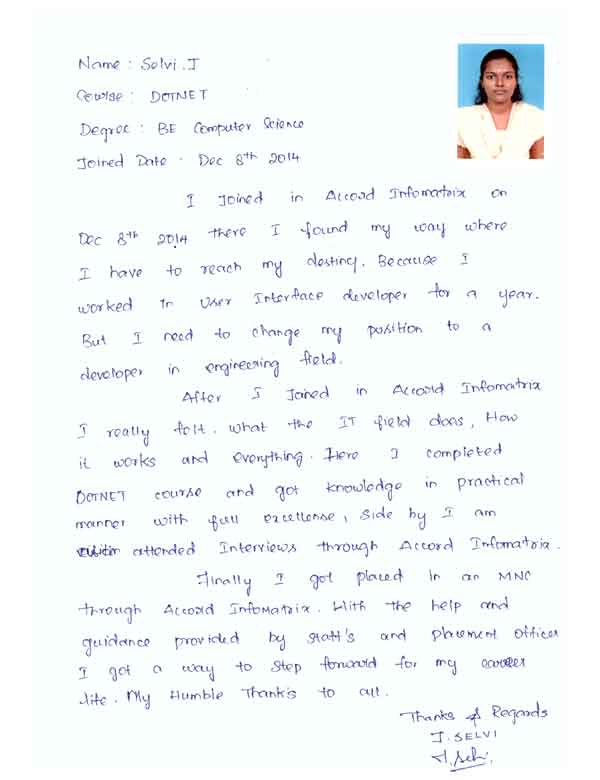 Name : Selvi. J
Course : DOTNET
Degree : BE Computer Science
Joined Date : Dec 8th 2014
I Joined in Accord Infomatrix on
Dec 8th 2014 there I found my way where
I have to reach my destiny. Because I
worked in User Interface developer for a year.
But I need to change my position to a
developer in engineering field.
After I Joined in Accord Infomatrix
I really felt. What the IT field does, How
it works and everything. Here I completed
DOTNET course and got knowledge in practical
manner with full excellense, side by I am
attended Interviews through Accord Infomatrix.
Finally I got placed in an MNC
through Accord Infomatrix. With the help and
guidance provided by staff's and Placement Officer
I got a way to step forward for my career
life. My Humble Thanks to all.
Thanks & Regards
J. SELVI
J. Selvi